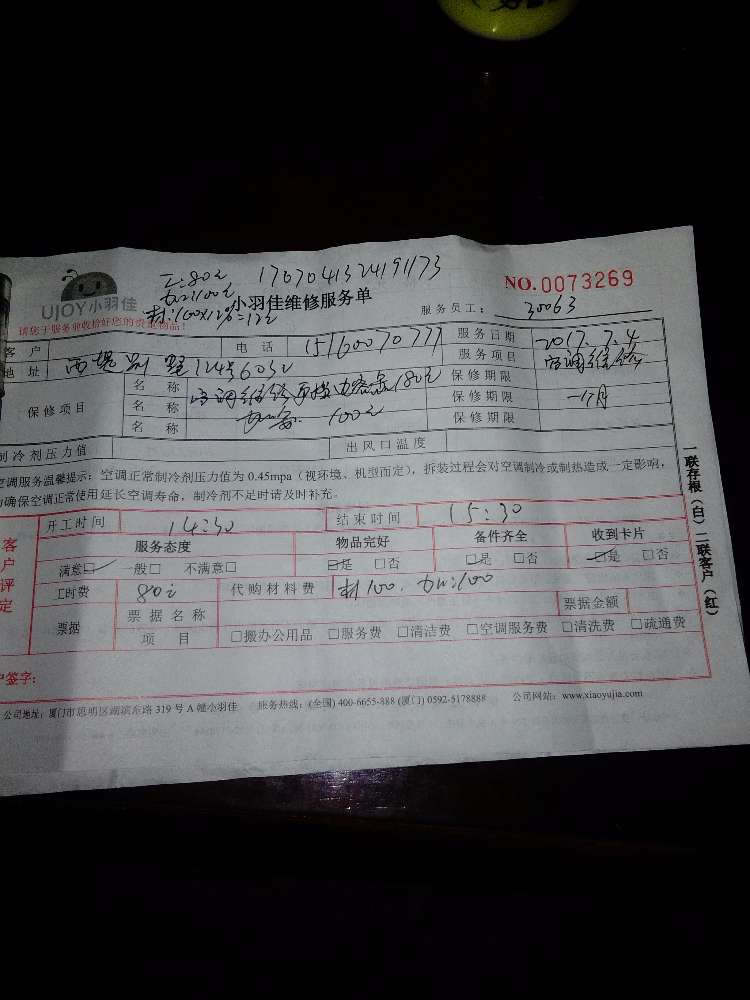 工:80元 1707041324191173
加:100元
材:100×12%=12元
UJOY小羽佳
小羽佳维修服务单
NO.0073269
请您于服务前收拾好您的贵重物品!
服务员工: 30063
客户 电话 15160070777 服务日期 2017.7.4
地址 西堤别墅124号603 服务项目 空调维修
保修项目
名称 空调维修 180元 保修期限
名称 100元 保修期限 一个月
名称 保修期限
制冷剂压力值 出风口温度
空调服务温馨提示:空调正常制冷剂压力值为 0.45mpa(视环境、机型而定),拆装过程会对空调制冷或制热造成一定影响,
为确保空调正常使用延长空调寿命,制冷剂不足时请及时补充。
客户评定
开工时间 14:30 结束时间 15:30
服务态度 物品完好 备件齐全 收到卡片
满意□ 一般□ 不满意□ □是 □否 □是 □否 □是 □否
工时费 80元 代购材料费 材100. 加:100
票据 票据名称 票据金额
项目 □搬办公用品 □服务费 □清洁费 □空调服务费 □清洗费 □疏通费
户签字:
公司地址:厦门市思明区湖滨东路 319 号 A 幢小羽佳 服务热线:(全国) 400-6655-888 (厦门) 0592-5178888 公司网站:www.xiaoyujia.com
一联存根(白)二联客户(红)